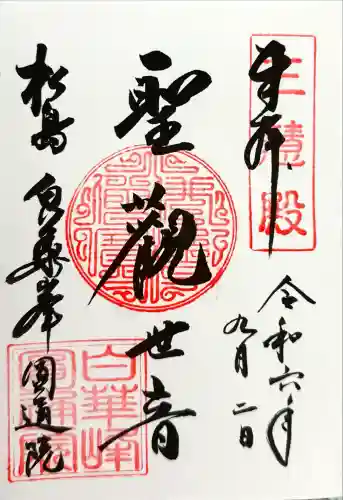 奉拝
三慧殿
令和六年
九月二日
聖觀世音
松島
白華峯
圓通院
白華峰
圓通院